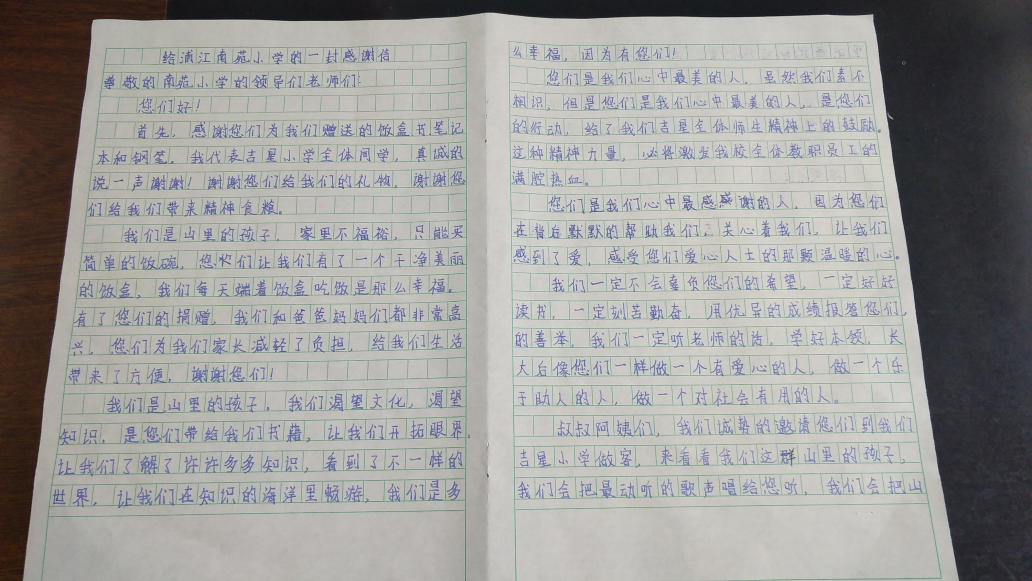 给浦江南苑小学的一封感谢信
尊敬的南苑小学的领导们老师们:
您们好!
首先，感谢您们为我们赠送的饭盒书笔记
本和钢笔。我代表吉星小学全体同学，真诚的
说一声谢谢!谢谢您们给我们的礼物，谢谢您
们给我们带来精神食粮。
我们是山里的孩子，家里不富裕，只能买
简单的饭碗，您们让我们有了一个干净美丽
的饭盒，我们每天端着饭盒吃饭是那么幸福。
有了您们的捐赠，我们和爸爸妈妈们都非常高
兴，您们为我们家长减轻了负担，给我们生活
带来了方便，谢谢您们!
我们是山里的孩子，我们渴望文化，渴望
知识，是您们带给我们书籍，让我们开拓眼界，
让我们了解了许许多多知识，看到了不一样的
世界，让我们在知识的海洋里畅游，我们是多
么幸福，因为有您们!
您们是我们心中最美的人，虽然我们素不
相识，但是您们是我们心中最美的人，是您们
的行动，给了我们吉星全体师生精神上的鼓励。
这种精神力量，必将激发我校全体教职员工的
满腔热血。
您们是我们心中最感感谢的人，因为您们
在背后默默的帮助我们，关心着我们，让我们
感到了爱，感受您们爱心人士的那颗温暖的心。
我们一定不会辜负您们的希望，一定好好
读书，一定刻苦勤奋，用优异的成绩报答您们
的善举，我们一定听老师的话，学好本领，长
大后像您们一样做一个有爱心的人，做一个乐
于助人的人，做一个对社会有用的人。
叔叔阿姨们，我们诚势的邀请您们到我们
吉星小学做客，来看看我们这群山里的孩子，
我们会把最动听的歌声唱给您听，我们会把山